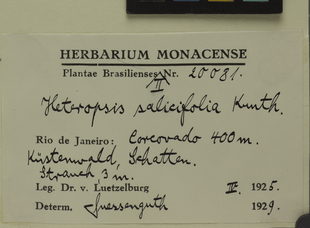 HERBARIUM MONACENSE
Plantae Brasilienses Nr. 20081.
II
Heteropsis salicifolia Kunth.
Rio de Janeiro: Corcovado 400 m.
Küstenwald, Schatten.
Strauch, 3 m.
Leg. Dr. v. Luetzelburg 1925.
Determ. Suessenguth 1929.